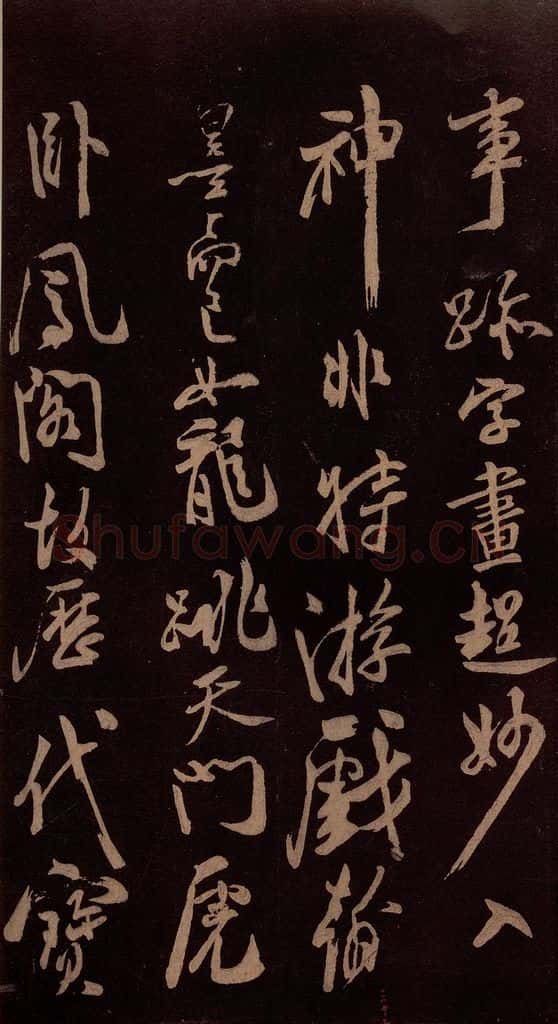 事跡字畫超妙入
神非特游戲翰
墨而已如龍跳天門虎
卧鳳閣故歷代寶
Shufawang.cn